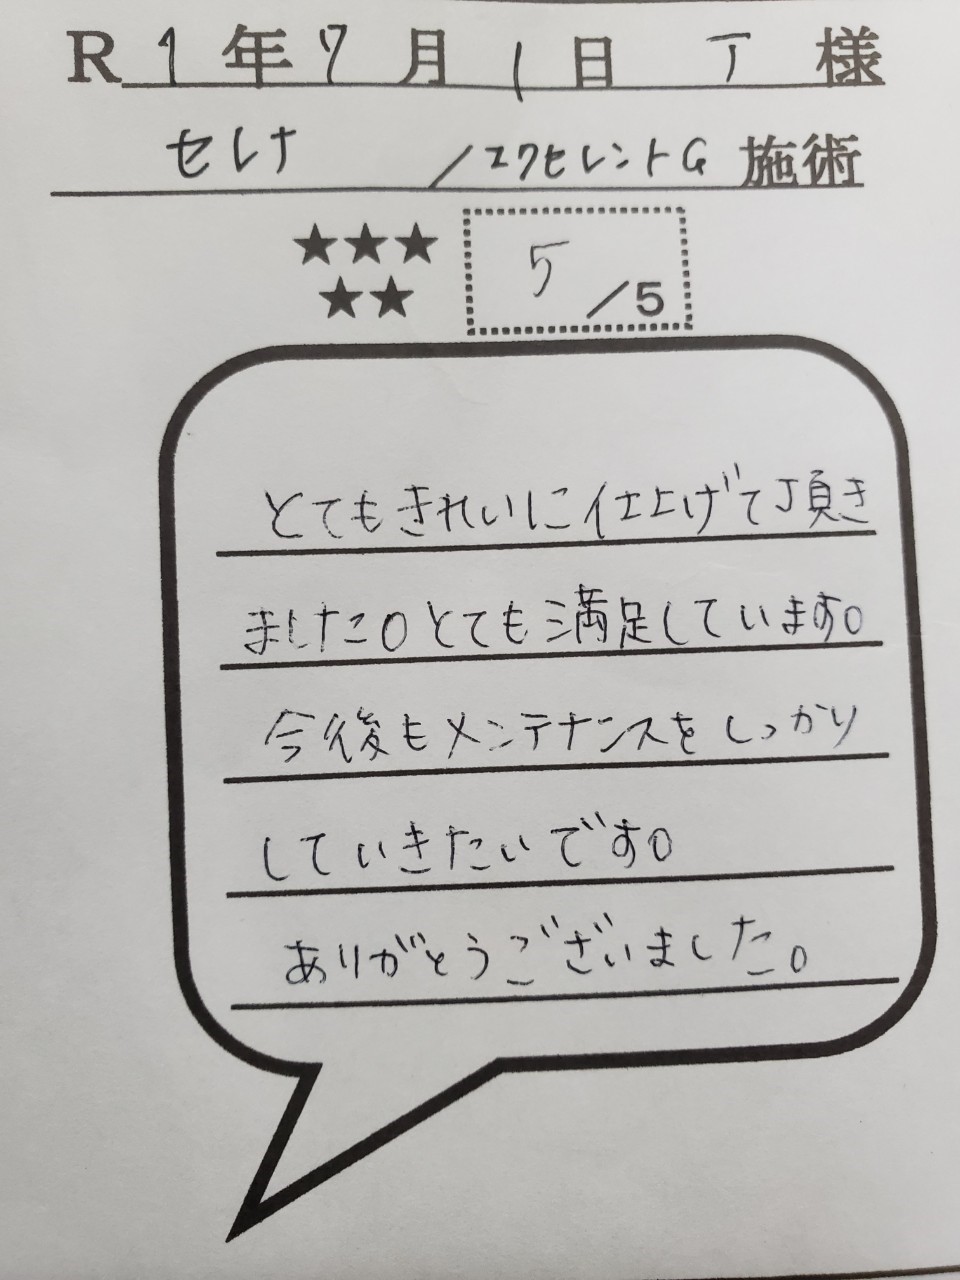 R 1 年 7 月 1 日 T 様
セレナ /エクセレントG 施術
★★★
★★
5/5
とてもきれいに仕上げて頂き
ました。とても満足しています。
今後もメンテナンスをしっかり
していきたいです。
ありがとうございました。